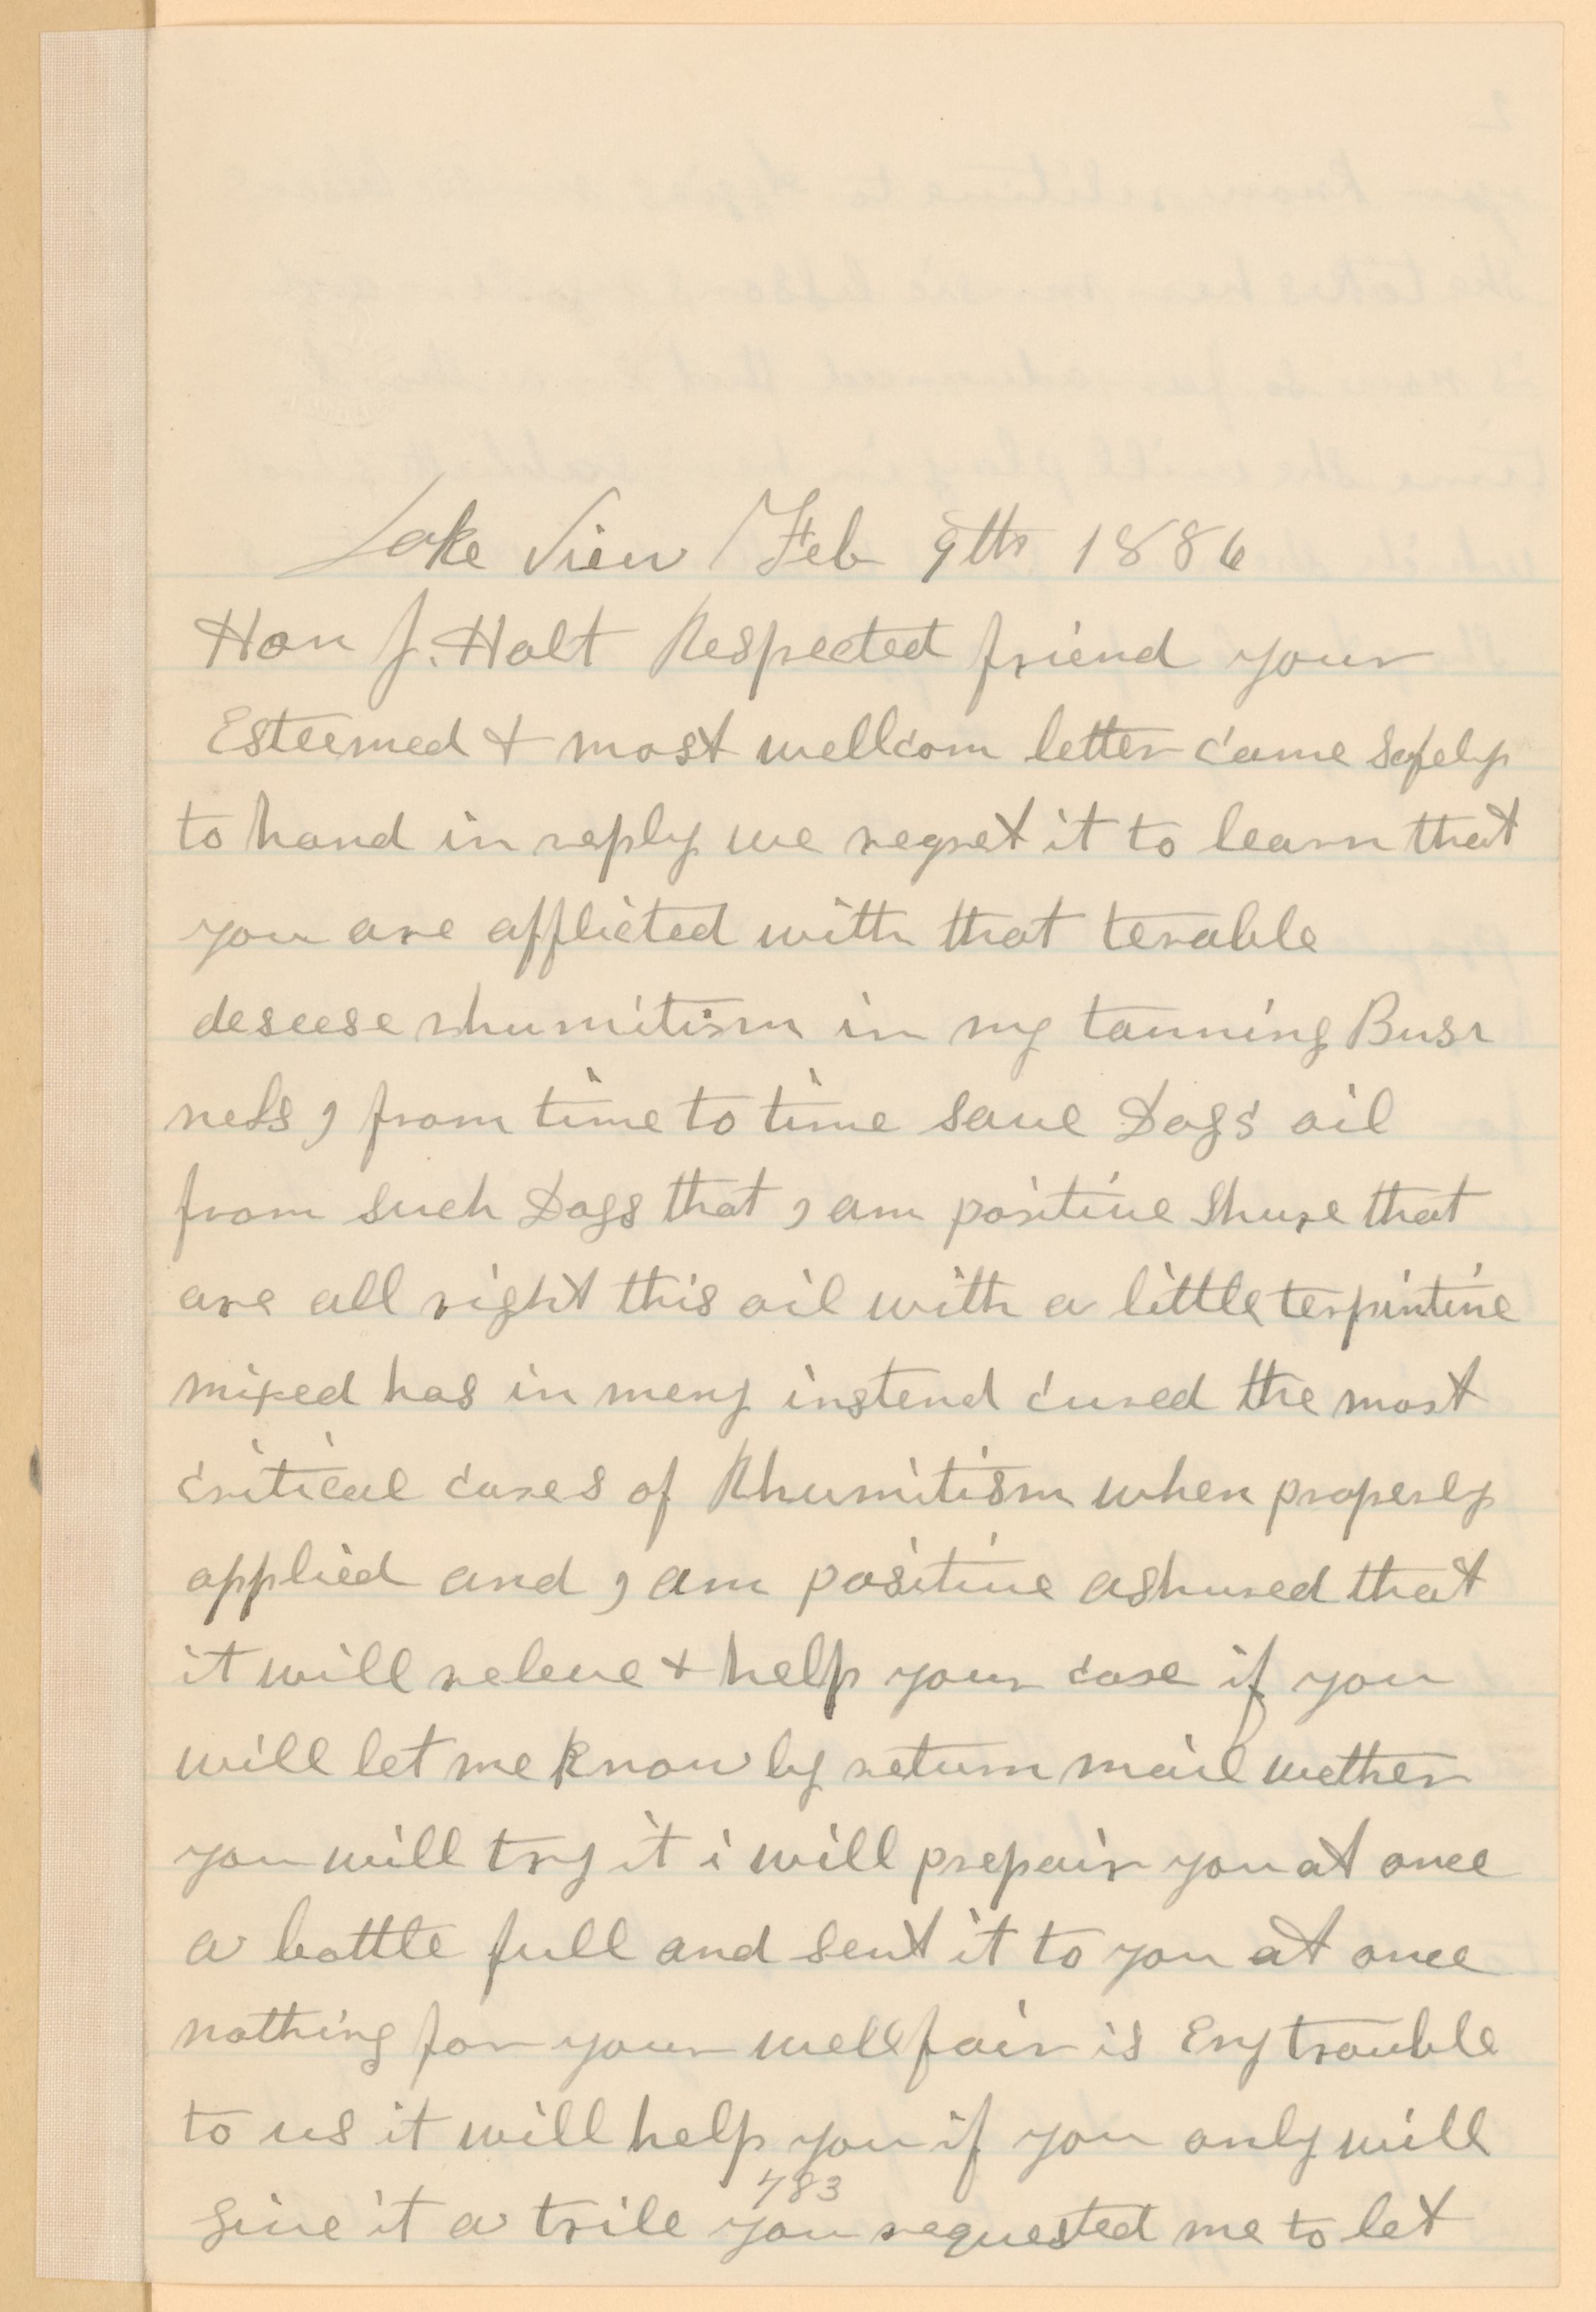 Lake View Feb 9th 1886
Hon J. Holt Respected friend your
Esteemed & most wellcom letter came safely
to hand in reply we regret it to learn that
you are afflicted with that terable
deseese rhumitism in my tanning Busi
ness , from time to time save Dogs oil
from such Dogs that , am positive Shure that
are all right this oil with a little terpintine
mixed has in meny instend cured the most
critical cases of Rhumitism when properly
applied and , am positive ashured that
it will releve & help your case if you
will let me know by return mail wether
you will try it i will prepair you at once
a bottle full and sent it to you at once
nothing for your wellfair is Eny trouble
to us it will help you if you only will
483
give it a trile you requested me to let